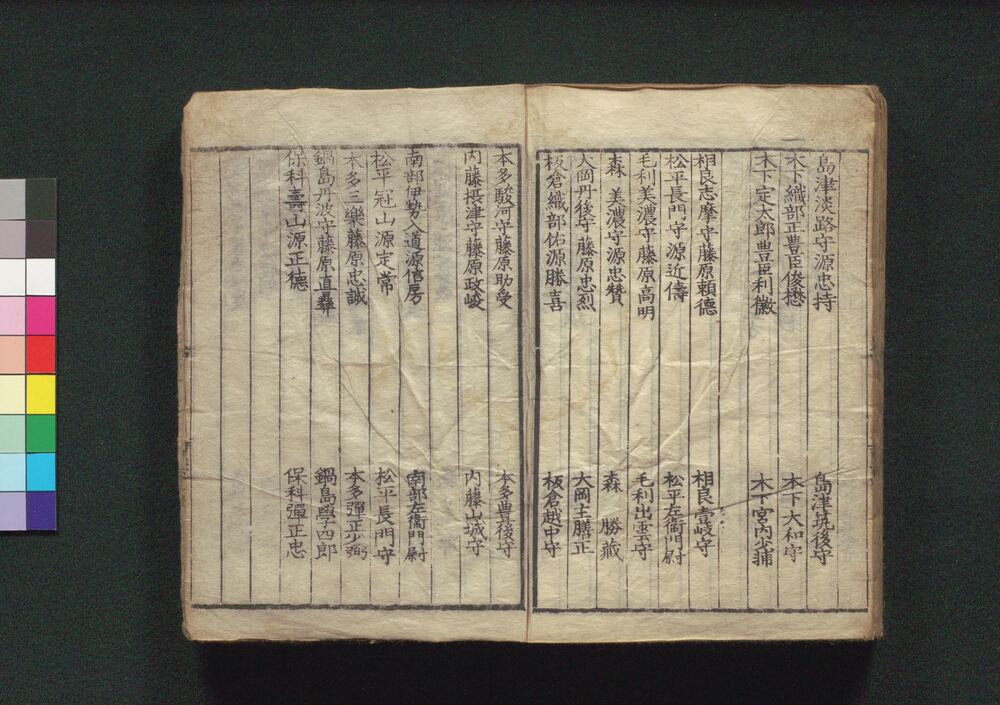 島津淡路守源忠持 島津筑後守
木下織部正豊臣俊懋 木下大和守
木下定太郎豊臣利徽 木下宮内少輔
相良志摩守藤原頼徳 相良壹岐守
松平長門守源近儔 松平左衞門尉
毛利美濃守藤原高明 毛利出雲守
森 美濃守源忠贊 森 勝藏
大岡丹後守藤原忠烈 大岡主膳正
板倉織部佑源勝喜 板倉越中守
本多駿河守藤原助受 本多豊後守
内藤摂津守藤原政峻 内藤山城守
南部伊勢入道源信房 南部左衞門尉
松平冠山源定常 松平長門守
本多三樂藤原忠誠 本多彈正少弼
鍋島丹波守藤原直彜 鍋島學四郎
保科壽山源正德 保科彈正忠